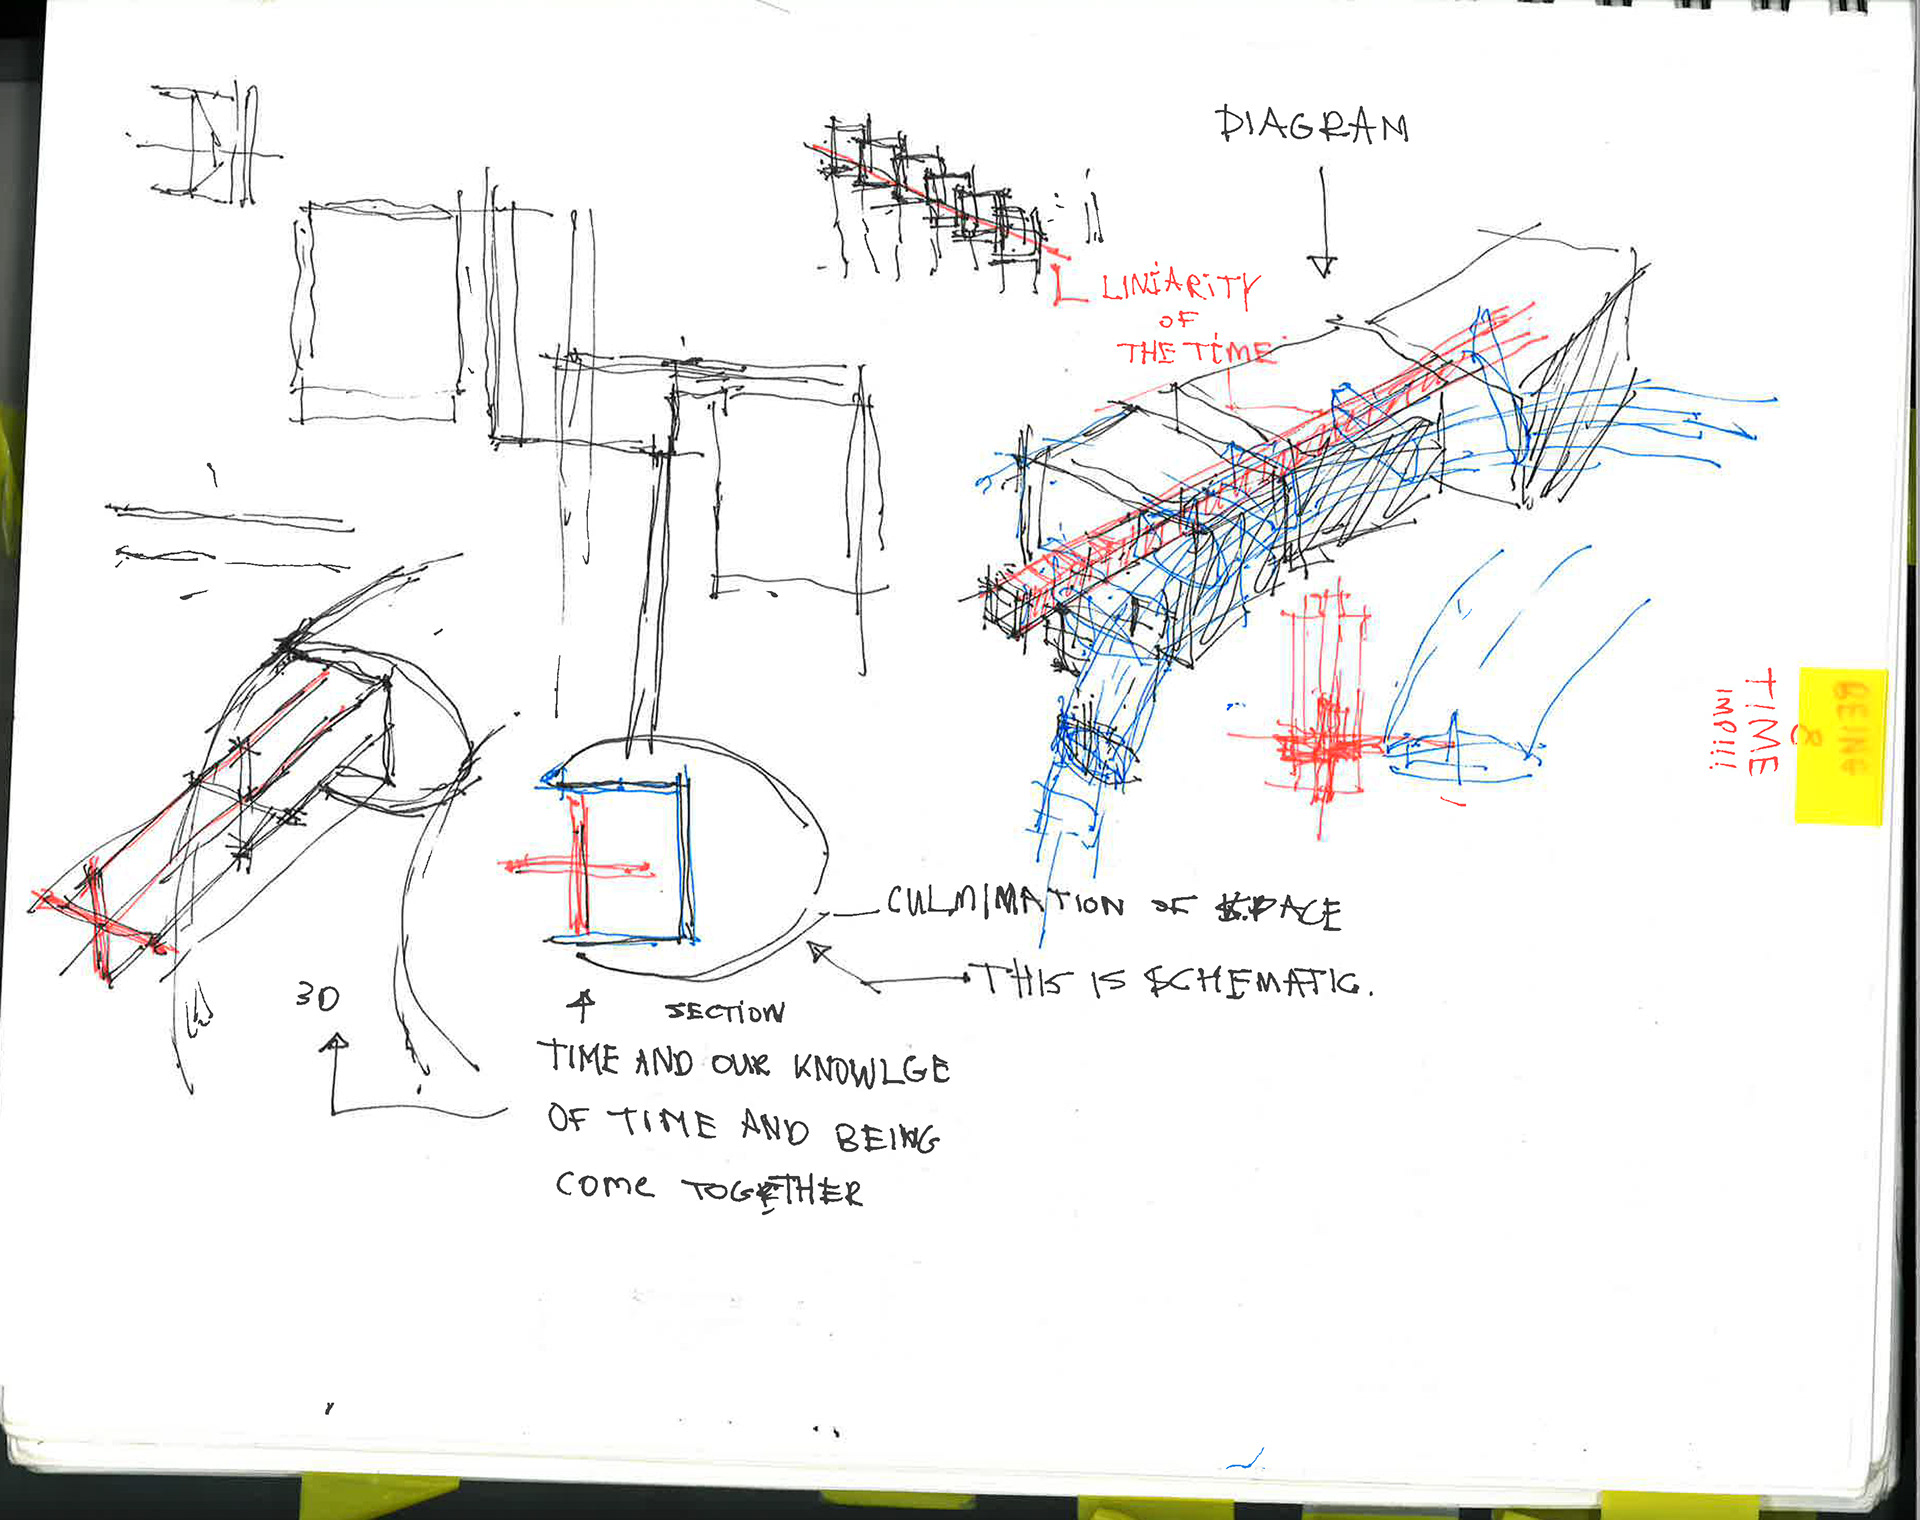 DIAGRAM
LINIARITY
OF
THE TIME
CULMIMATION OF SPACE
THIS IS SCHEMATIC.
3D
SECTION
TIME AND OUR KNOWLGE
OF TIME AND BEING
COME TOGETHER
BEING
&
TIME
IMP!!!